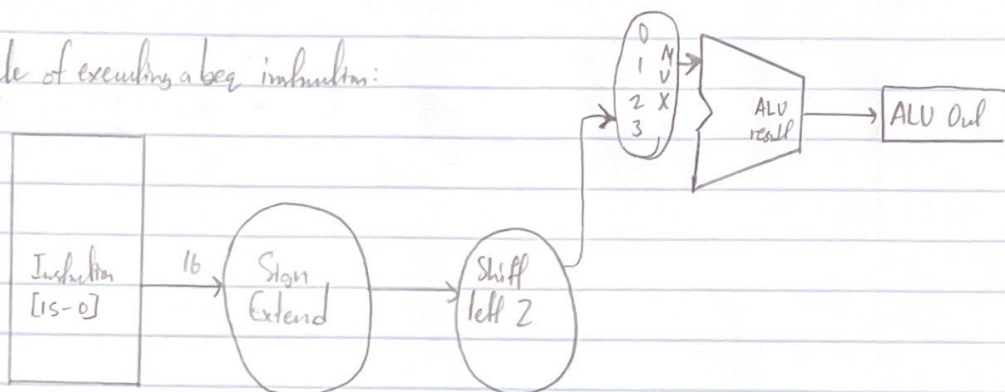 le of executing a beq instruction:
0
1
2
3
MUX
ALU
result
ALU Out
Instruction
[15-0]
16
Sign
Extend
Shift
left 2